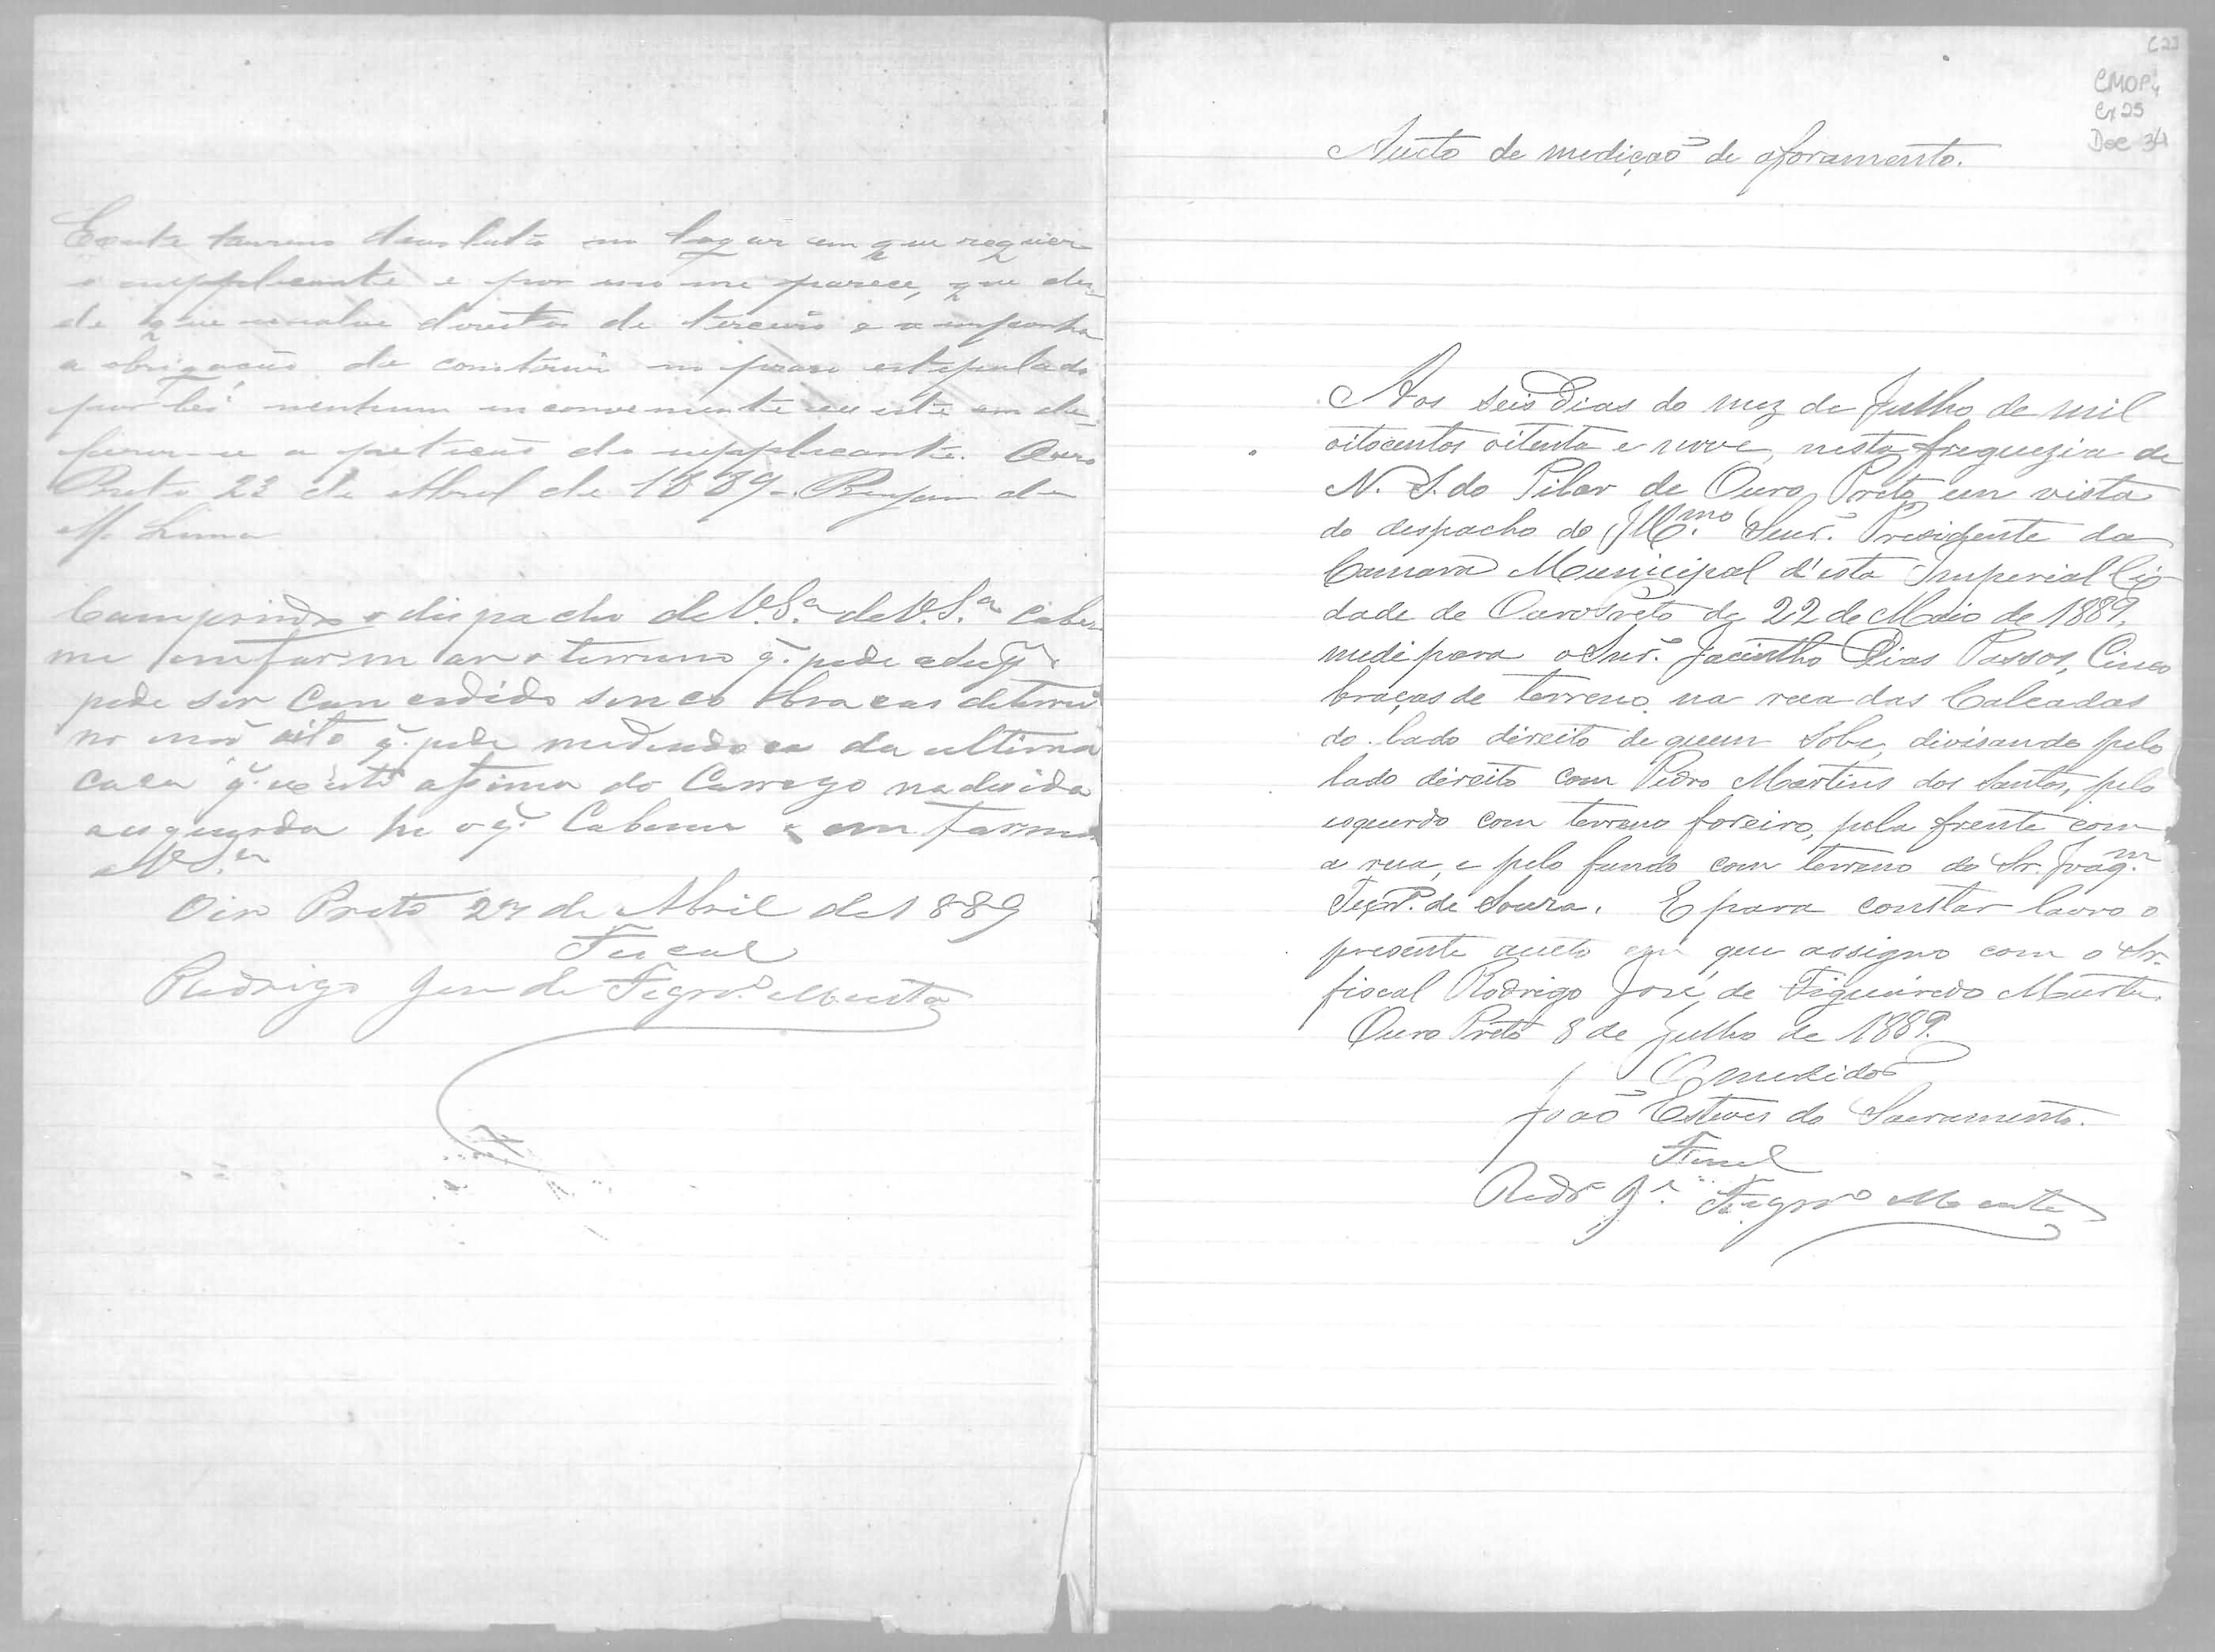 Existe terreno devoluto no logar em que requer
o supplicante e por isso me parece, que des-
de que resalve direitos de terceiro e se imponha
a obrigação de construir no praso estipulado
por lei nenhum inconveniente existe em de-
ferir-se a petição do supplicante. Ouro
Preto 23 de Abril de 1889 -
M. Lima
Comprindo o dispacho de V.Sª. de V.S.ª cabe-
me emformar o terreno q. pede
pode ser concedido sinco bracas deterre
no não oito q. pede midindo da ultima
casa q. existe assima do Corrego na desida
a esquerda he o q. Cabeme emformar
a V.S.ª
Oiro Preto 27 de Abril de 1889
Fiscal
Rodrigo José de Figrdº. Murta
C23
CMOP
Cx 25
Doc 34
Aucto de medição de aforamento.
Aos seis dias do mez de Julho de mil
oitocentos oitenta e nove, nesta freguezia de
N. S. do Pilar de Ouro Preto, em vista
do despacho do Illmo. Senr. Presidente da
Camara Municipal d'esta Imperial Ci-
dade de Ouro Preto de 22 de Maio de 1889,
medi para o Snr. Jacintho Dias Passos, Cinco
braças de terreno na rua das Calcadas
do lado direito de quem sobe, divisando pelo
lado direito com Pedro Martins dos Santos, pelo
esquerdo com terreno foreiro, pela frente com
a rua, e pelo fundo com terreno do Sr. Joaqm.
de Souza. E para constar lavro o
presente aucto em que assigno com o Sr.
fiscal Rodrigo José de Figueiredo Murta.
Ouro Preto 8 de Julho de 1889.
O medidor
João Esteves do Sacramento.
Fiscal
Rodrº Jé. Figrdº Murta